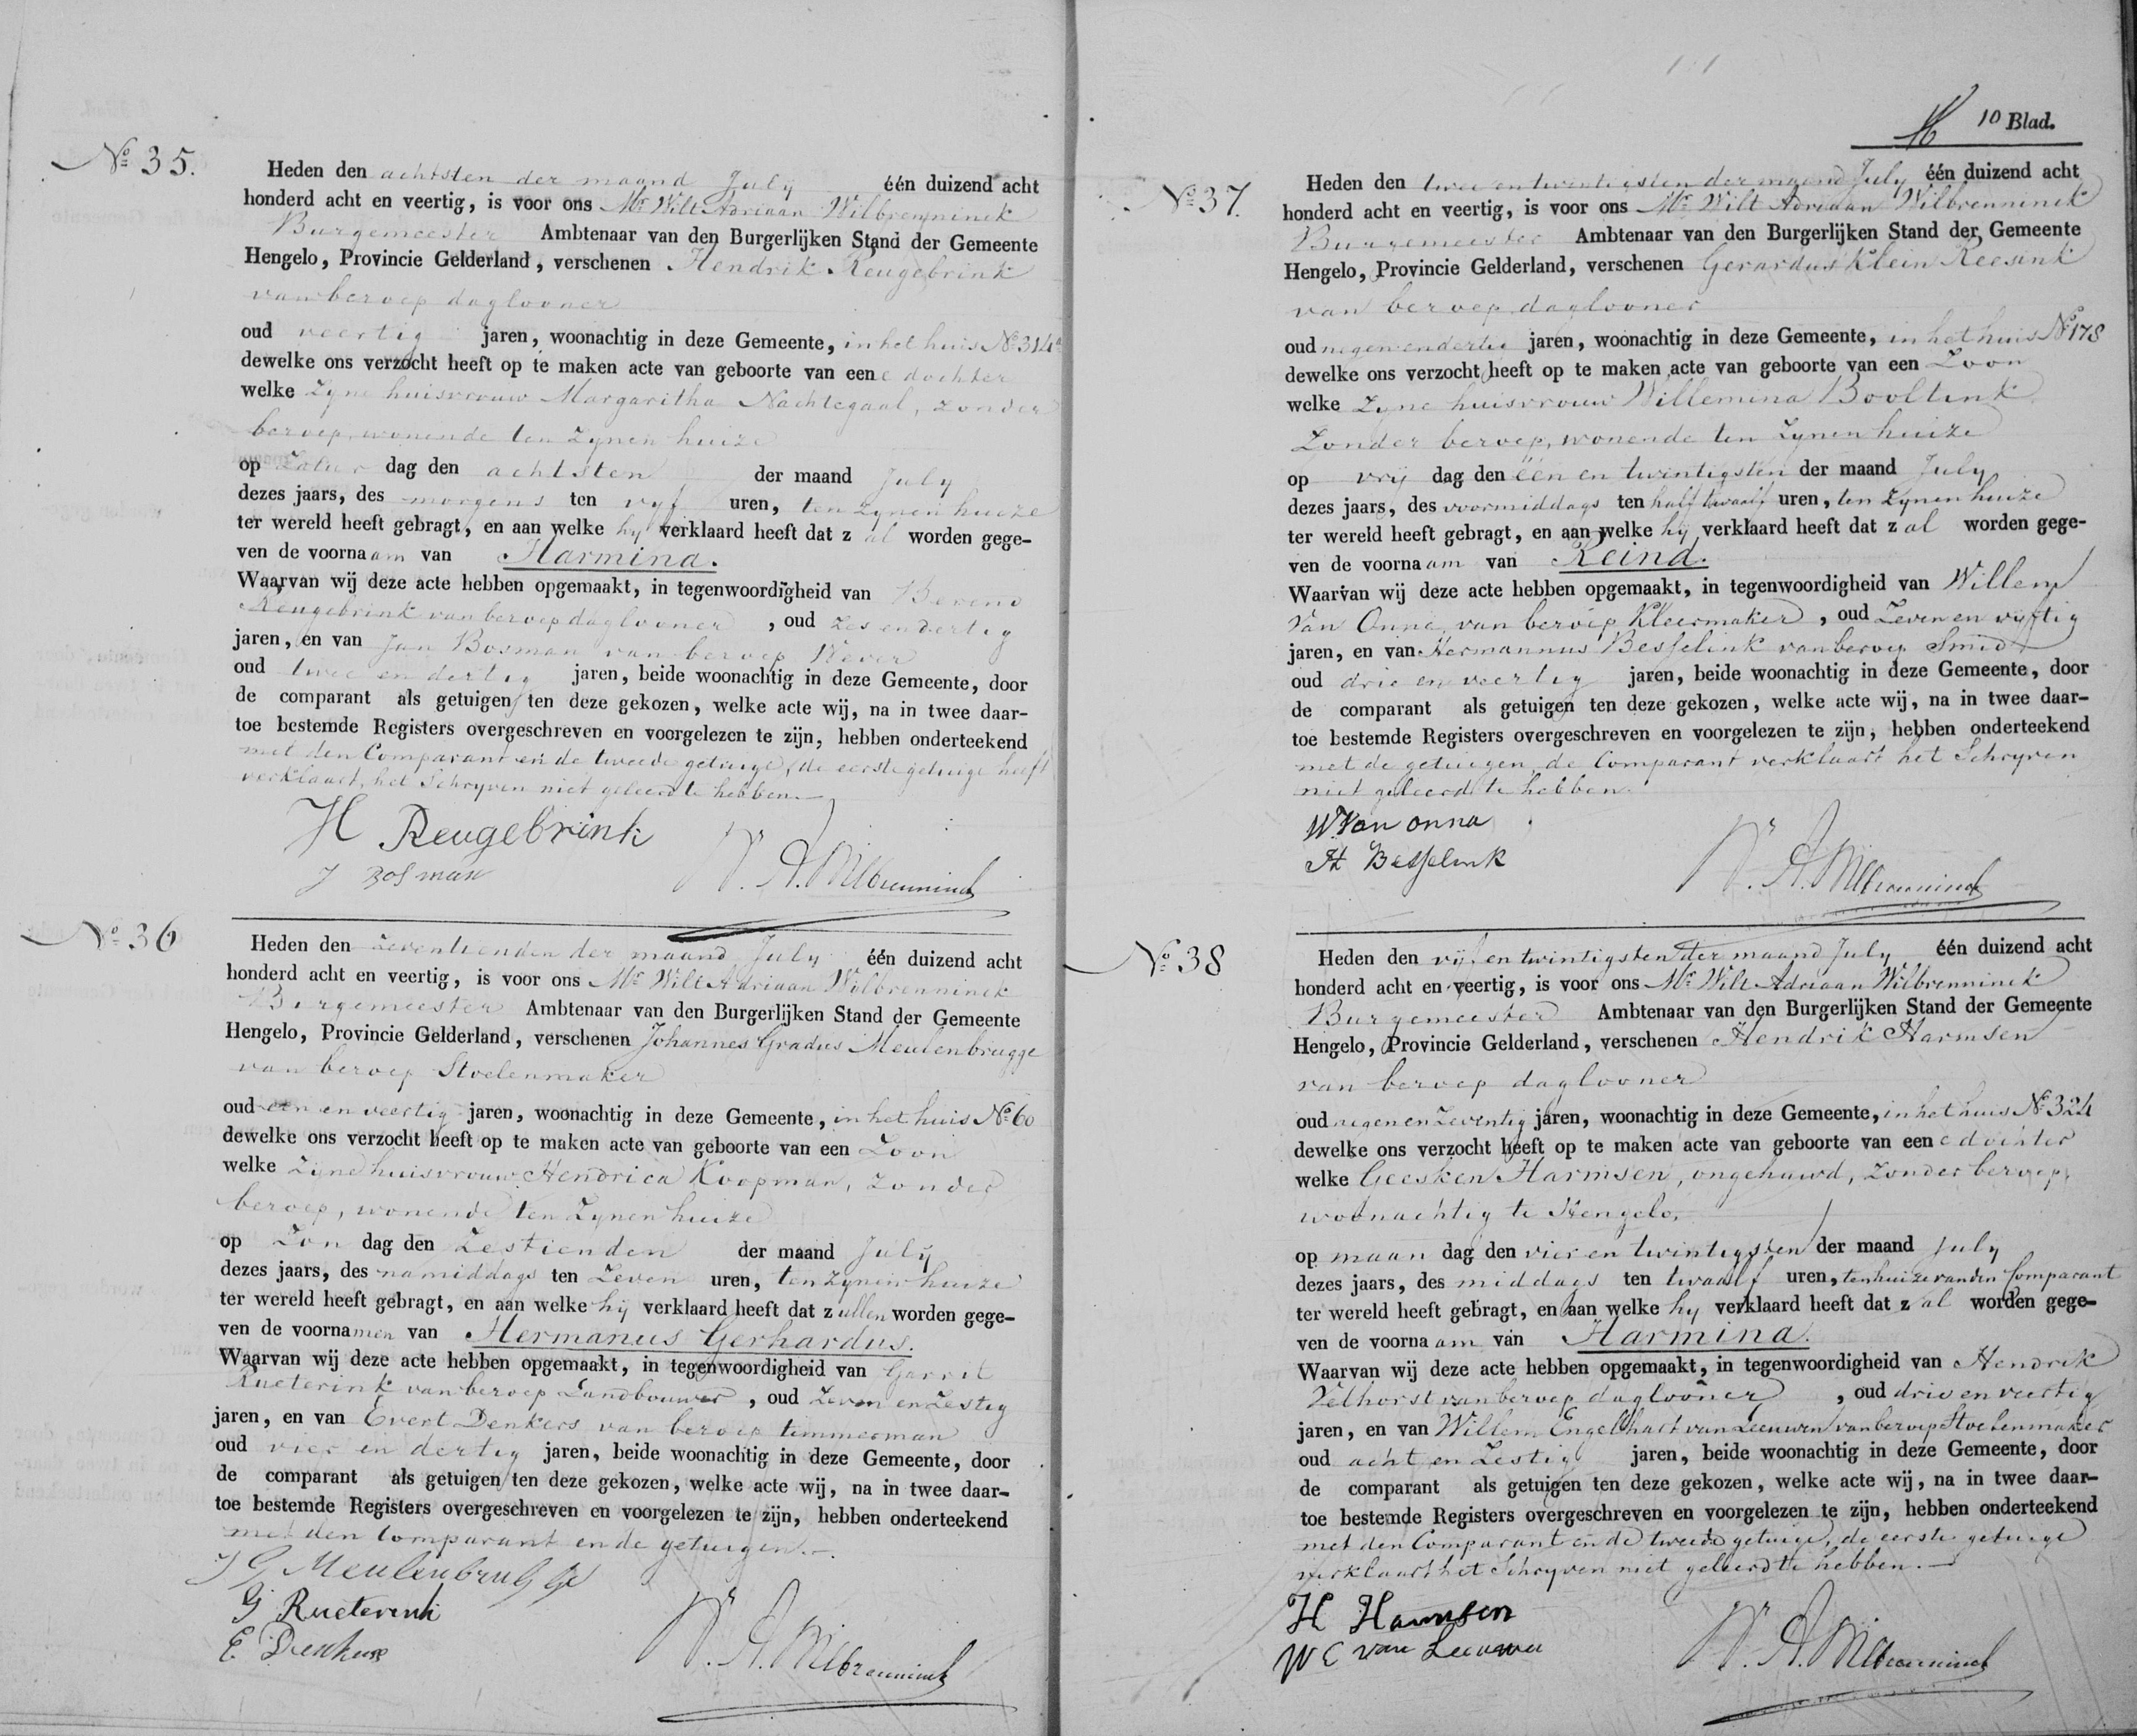 No 35.
Heden den achtsten der maand July één duizend acht
honderd acht en veertig, is voor ons Mr Wilt Adriaan Wilbrenninck
Burgemeester Ambtenaar van den Burgerlijken Stand der Gemeente
Hengelo, Provincie Gelderland, verschenen Hendrik Reugebrink
van beroep daglooner
oud veertig jaren, woonachtig in deze Gemeente, in het huis No 314a
dewelke ons verzocht heeft op te maken acte van geboorte van eene dochter
welke Zyne huisvrouw Margaritha Nachtegaal, zonder
beroep, wonende ten Zynen huize
op Zatur dag den achtsten der maand July
dezes jaars, des morgens ten vyf uren, ten zynen huize
ter wereld heeft gebragt, en aan welke hy verklaard heeft dat zal worden gege-
ven de voornaam van Harmina.
Waarvan wij deze acte hebben opgemaakt, in tegenwoordigheid van Berend
Reugebrink van beroep daglooner, oud zes en dertig
jaren, en van Jan Bosman van beroep Wever
oud twee en dertig jaren, beide woonachtig in deze Gemeente, door
de comparant als getuigen ten deze gekozen, welke acte wij, na in twee daar-
toe bestemde Registers overgeschreven en voorgelezen te zijn, hebben onderteekend
met den Comparant en de tweede getuige, de eerste getuige heeft
verklaard, het Schryven niet geleerd te hebben.
H Reugebrink
J Bosman W. A. Wilbrenninck
No 36
Heden den Zeventienden der maand July één duizend acht
honderd acht en veertig, is voor ons Mr Wilt Adriaan Wilbrenninck
Burgemeester Ambtenaar van den Burgerlijken Stand der Gemeente
Hengelo, Provincie Gelderland, verschenen Johannes Gradus Meulenbrugge
van beroep Stoelenmaker
oud een en veertig jaren, woonachtig in deze Gemeente, in het huis No 60
dewelke ons verzocht heeft op te maken acte van geboorte van een Zoon
welke Zyne huisvrouw Hendrica Koopman, zonder
beroep, wonende ten Zynen huize
op Zon dag den Zestienden der maand July
dezes jaars, des namiddags ten Zeven uren, ten zynen huize
ter wereld heeft gebragt, en aan welke hij verklaard heeft dat zullen worden gege-
ven de voornamen van Hermanus Gerhardus.
Waarvan wij deze acte hebben opgemaakt, in tegenwoordigheid van Garrit
Rueterink van beroep Landbouwer, oud Zeven en Zestig
jaren, en van Evert Denkers van beroep timmerman
oud vier en dertig jaren, beide woonachtig in deze Gemeente, door
de comparant als getuigen ten deze gekozen, welke acte wij, na in twee daar-
toe bestemde Registers overgeschreven en voorgelezen te zijn, hebben onderteekend
met den Comparant en de getuigen.
J G Meulenbrugge
G Rueterink
E. Denkers W. A. Wilbrenninck
10 Blad.
No 37.
Heden den twee en twintigsten der maand July één duizend acht
honderd acht en veertig, is voor ons Mr Wilt Adriaan Wilbrenninck
Burgemeester Ambtenaar van den Burgerlijken Stand der Gemeente
Hengelo, Provincie Gelderland, verschenen Gerardus Klein Reesink
van beroep daglooner
oud negen en dertig jaren, woonachtig in deze Gemeente, in het huis No 178
dewelke ons verzocht heeft op te maken acte van geboorte van een Zoon
welke Zyne huisvrouw Willemina Booltink
Zonder beroep, wonende ten Zynen huize
op vrij dag den één en twintigsten der maand July
dezes jaars, des voormiddags ten half twaalf uren, ten zynen huize
ter wereld heeft gebragt, en aan welke hij verklaard heeft dat zal worden gege-
ven de voornaam van Reind.
Waarvan wij deze acte hebben opgemaakt, in tegenwoordigheid van Willem
Van Onna, van beroep Kleermaker, oud Zeven en vyftig
jaren, en van Hermannus Besselink van beroep Smid
oud drie en veertig jaren, beide woonachtig in deze Gemeente, door
de comparant als getuigen ten deze gekozen, welke acte wij, na in twee daar-
toe bestemde Registers overgeschreven en voorgelezen te zijn, hebben onderteekend
met de getuigen, de Comparant verklaart het Schryven
niet geleerd te hebben.
W. Van Onna
H Besselink W. A. Wilbrenninck
No 38
Heden den vijf en twintigsten der maand July één duizend acht
honderd acht en veertig, is voor ons Mr Wilt Adriaan Wilbrenninck
Burgemeester Ambtenaar van den Burgerlijken Stand der Gemeente
Hengelo, Provincie Gelderland, verschenen Hendrik Harmsen
van beroep daglooner
oud negen en Zeventig jaren, woonachtig in deze Gemeente, in het huis No 324
dewelke ons verzocht heeft op te maken acte van geboorte van eene dochter
welke Geesken Harmsen, ongehuwd, zonder beroep,
woonachtig te Hengelo,
op maan dag den vier en twintigsten der maand July
dezes jaars, des middags ten twaalf uren, ten huize van den Comparant
ter wereld heeft gebragt, en aan welke hy verklaard heeft dat zal worden gege-
ven de voornaam van Harmina.
Waarvan wij deze acte hebben opgemaakt, in tegenwoordigheid van Hendrik
Velhorst van beroep daglooner, oud drie en veertig
jaren, en van Willem Engelhart van Leeuwen van beroep Stoelenmaker
oud acht en Zestig jaren, beide woonachtig in deze Gemeente, door
de comparant als getuigen ten deze gekozen, welke acte wij, na in twee daar-
toe bestemde Registers overgeschreven en voorgelezen te zijn, hebben onderteekend
met den Comparant en de tweede getuige, de eerste getuige
verklaart het Schryven niet geleerd te hebben.
H Harmsen
W E van Leeuwen W. A. Wilbrenninck